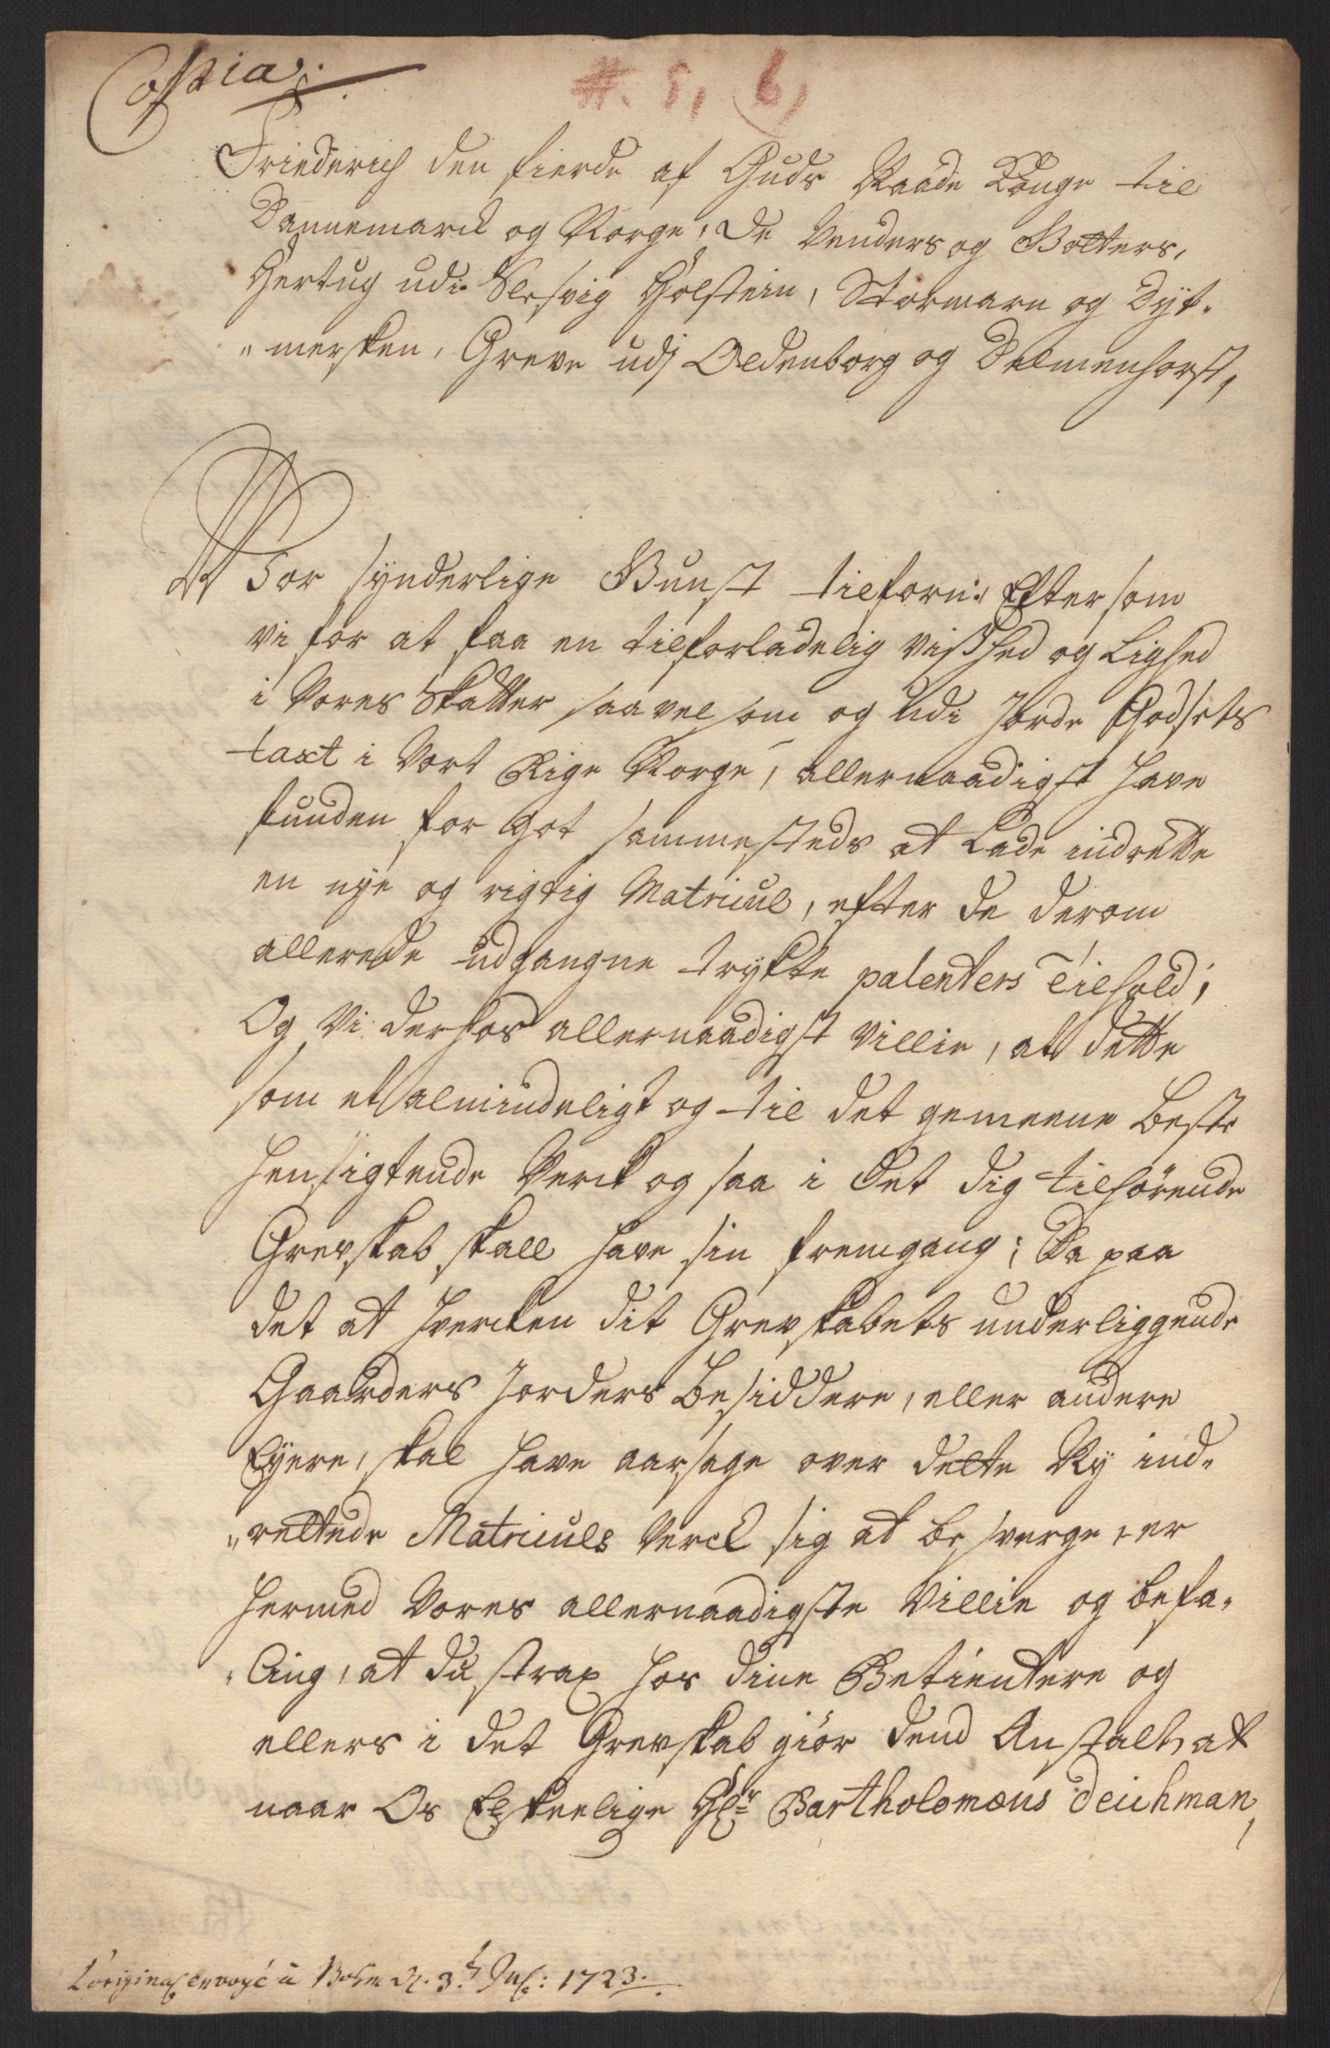 Copia.
#. 5, (6)
Friederich den fierde af Guds Naade Konge til
Dannemarck og Norge, De Venders og Gotters,
Hertug udi Slesvig Holstein, Stormarn og Dyt-
"mersken, Greve udj Oldenborg og Delmenhorst,
Vor synderlige Gunst tilforn: Eftersom
vi for at faa en tilforladelig vished og Lighed
i Vores Skatter saavelsom og udi Jorde Godsets
taxt i Vort Rige Norge, allernaadigst have
funden for got sammesteds at Lade indrette
en nye og rigtig Matricul, efter de derom
allerede udgangne trykte patenters Tilhold;
Og Vi derhos allernaadigst Villie, at dette
som et almindeligt og til det gemeene beste
hensigtende Verck og saa i det dig tilhørende
Grevskab skall have sin fremgang; Da paa
det at hvercken dit Grevskabets underliggende
Gaarders Jorders besiddere, eller andere
Eyere, skal have aarsage over dette Ny ind-
"rettede Matriculs Verck sig at besverge, er
hermed Vores allernaadigste Villie og befa-
"ling, at du strax hos dine Betientere og
ellers i det Grevskab giør dend Anstalt, at
naar Os Elskelige Hr Bartholomæus Deichman,
L'original envoyé à Bohm d. 3t Jul: 1723.